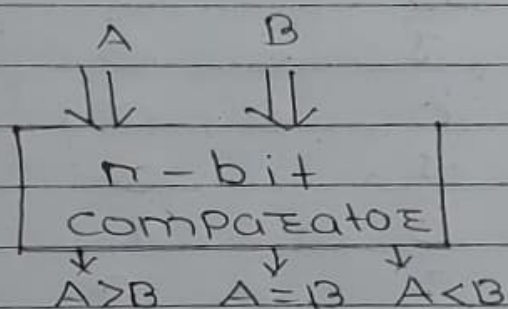 A B
n-bit
comparator
A>B A=B A<B